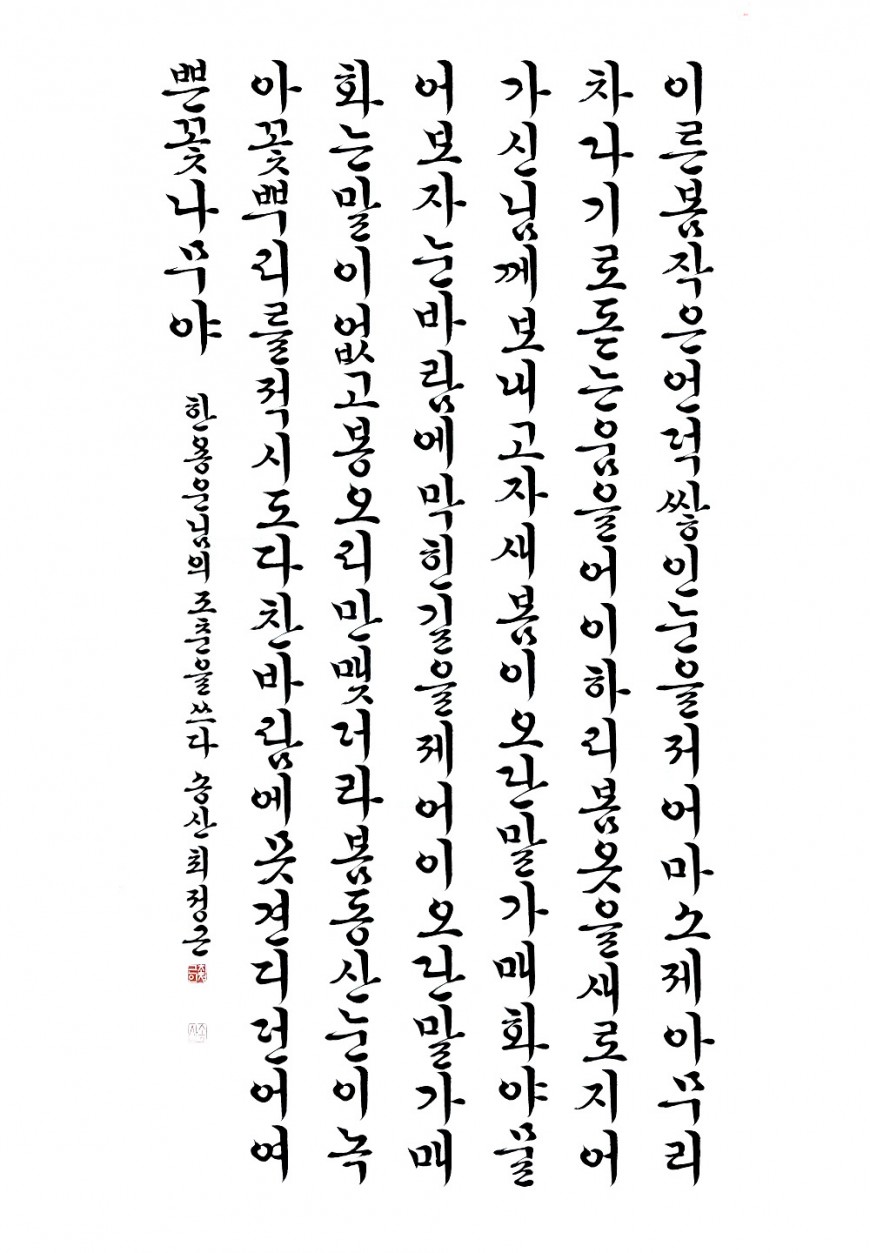 이른봄작은언덕쌓인눈을저어마소제아무리
차다기로돋는움을어이하리봄옷을새로지어
가신님께보내고자새봄이오단말가매화야물
어보자눈바람에막힌길을제어이오단말가매
화는말이없고봉오리만맺더라봄동산눈이녹
아꽃뿌리를적시도다찬바람에못견디던어여
쁜꽃나무야
한용운님의 조춘을 쓰다 송산 최정근